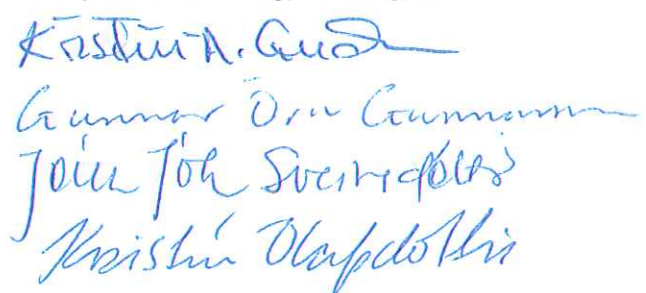 Kristín Á. Guð
Gunnar Örn Gunnarsson
Jóna Jóh Sveinsdóttir
Kristín Ólafsdóttir